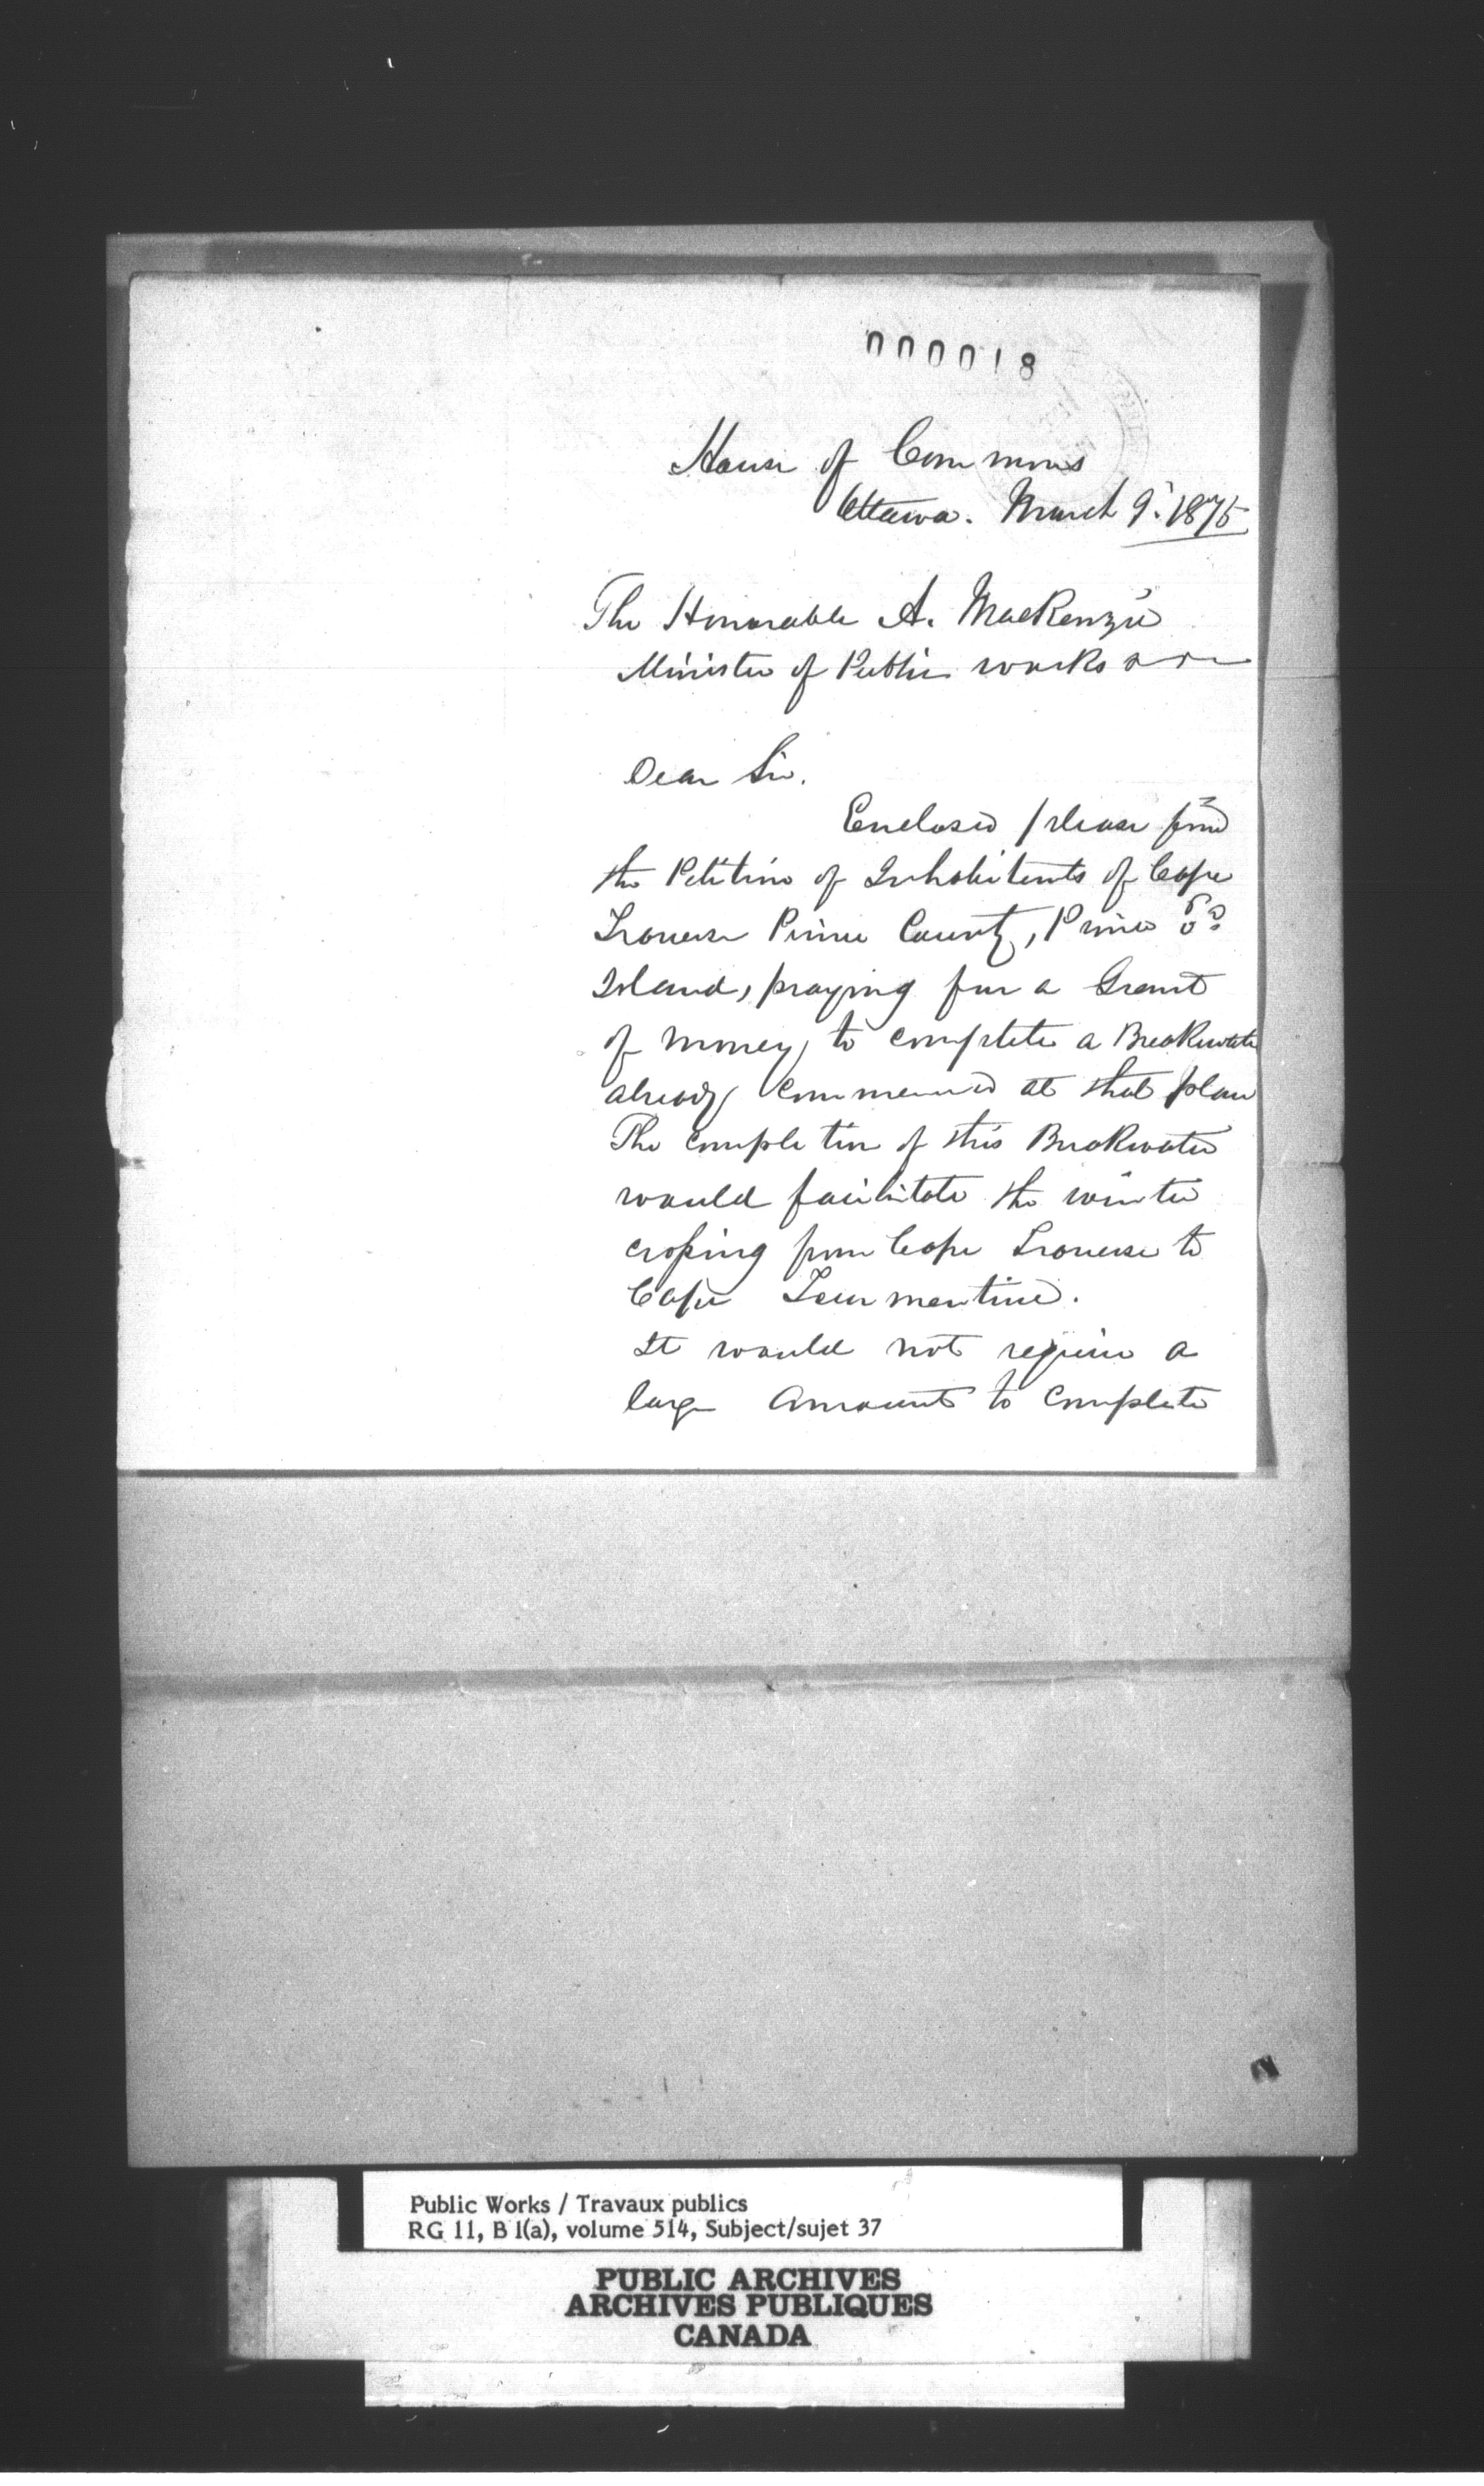 000018
House of Commons
Ottawa. March 9. 1875
The Honorable A. MacKenzie
Minister of Public works
Dear Sir.
Enclosed please find
the Petition of Inhabitents of Cape
Traverse Prince County, Prince Ed
Island, praying for a Grant
of money to complete a Breakwater
already commenced at that place
The completion of this Breakwater
would facilitate the winter
crossing from Cape Traverse to
Cape Tourmentine.
It would not require a
large amount to complete
Public Works / Travaux publics
RG 11, B 1(a), volume 514, Subject/sujet 37
PUBLIC ARCHIVES
ARCHIVES PUBLIQUES
CANADA